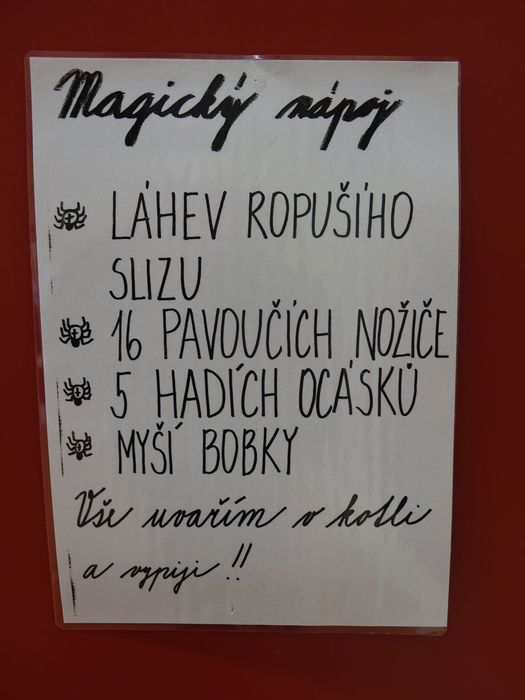 Magický nápoj
LÁHEV ROPUŠÍHO
SLIZU
16 PAVOUČÍCH NOŽIČE
5 HADÍCH OCÁSKŮ
MYŠÍ BOBKY
Vše uvařím v kotli
a vypiji!!